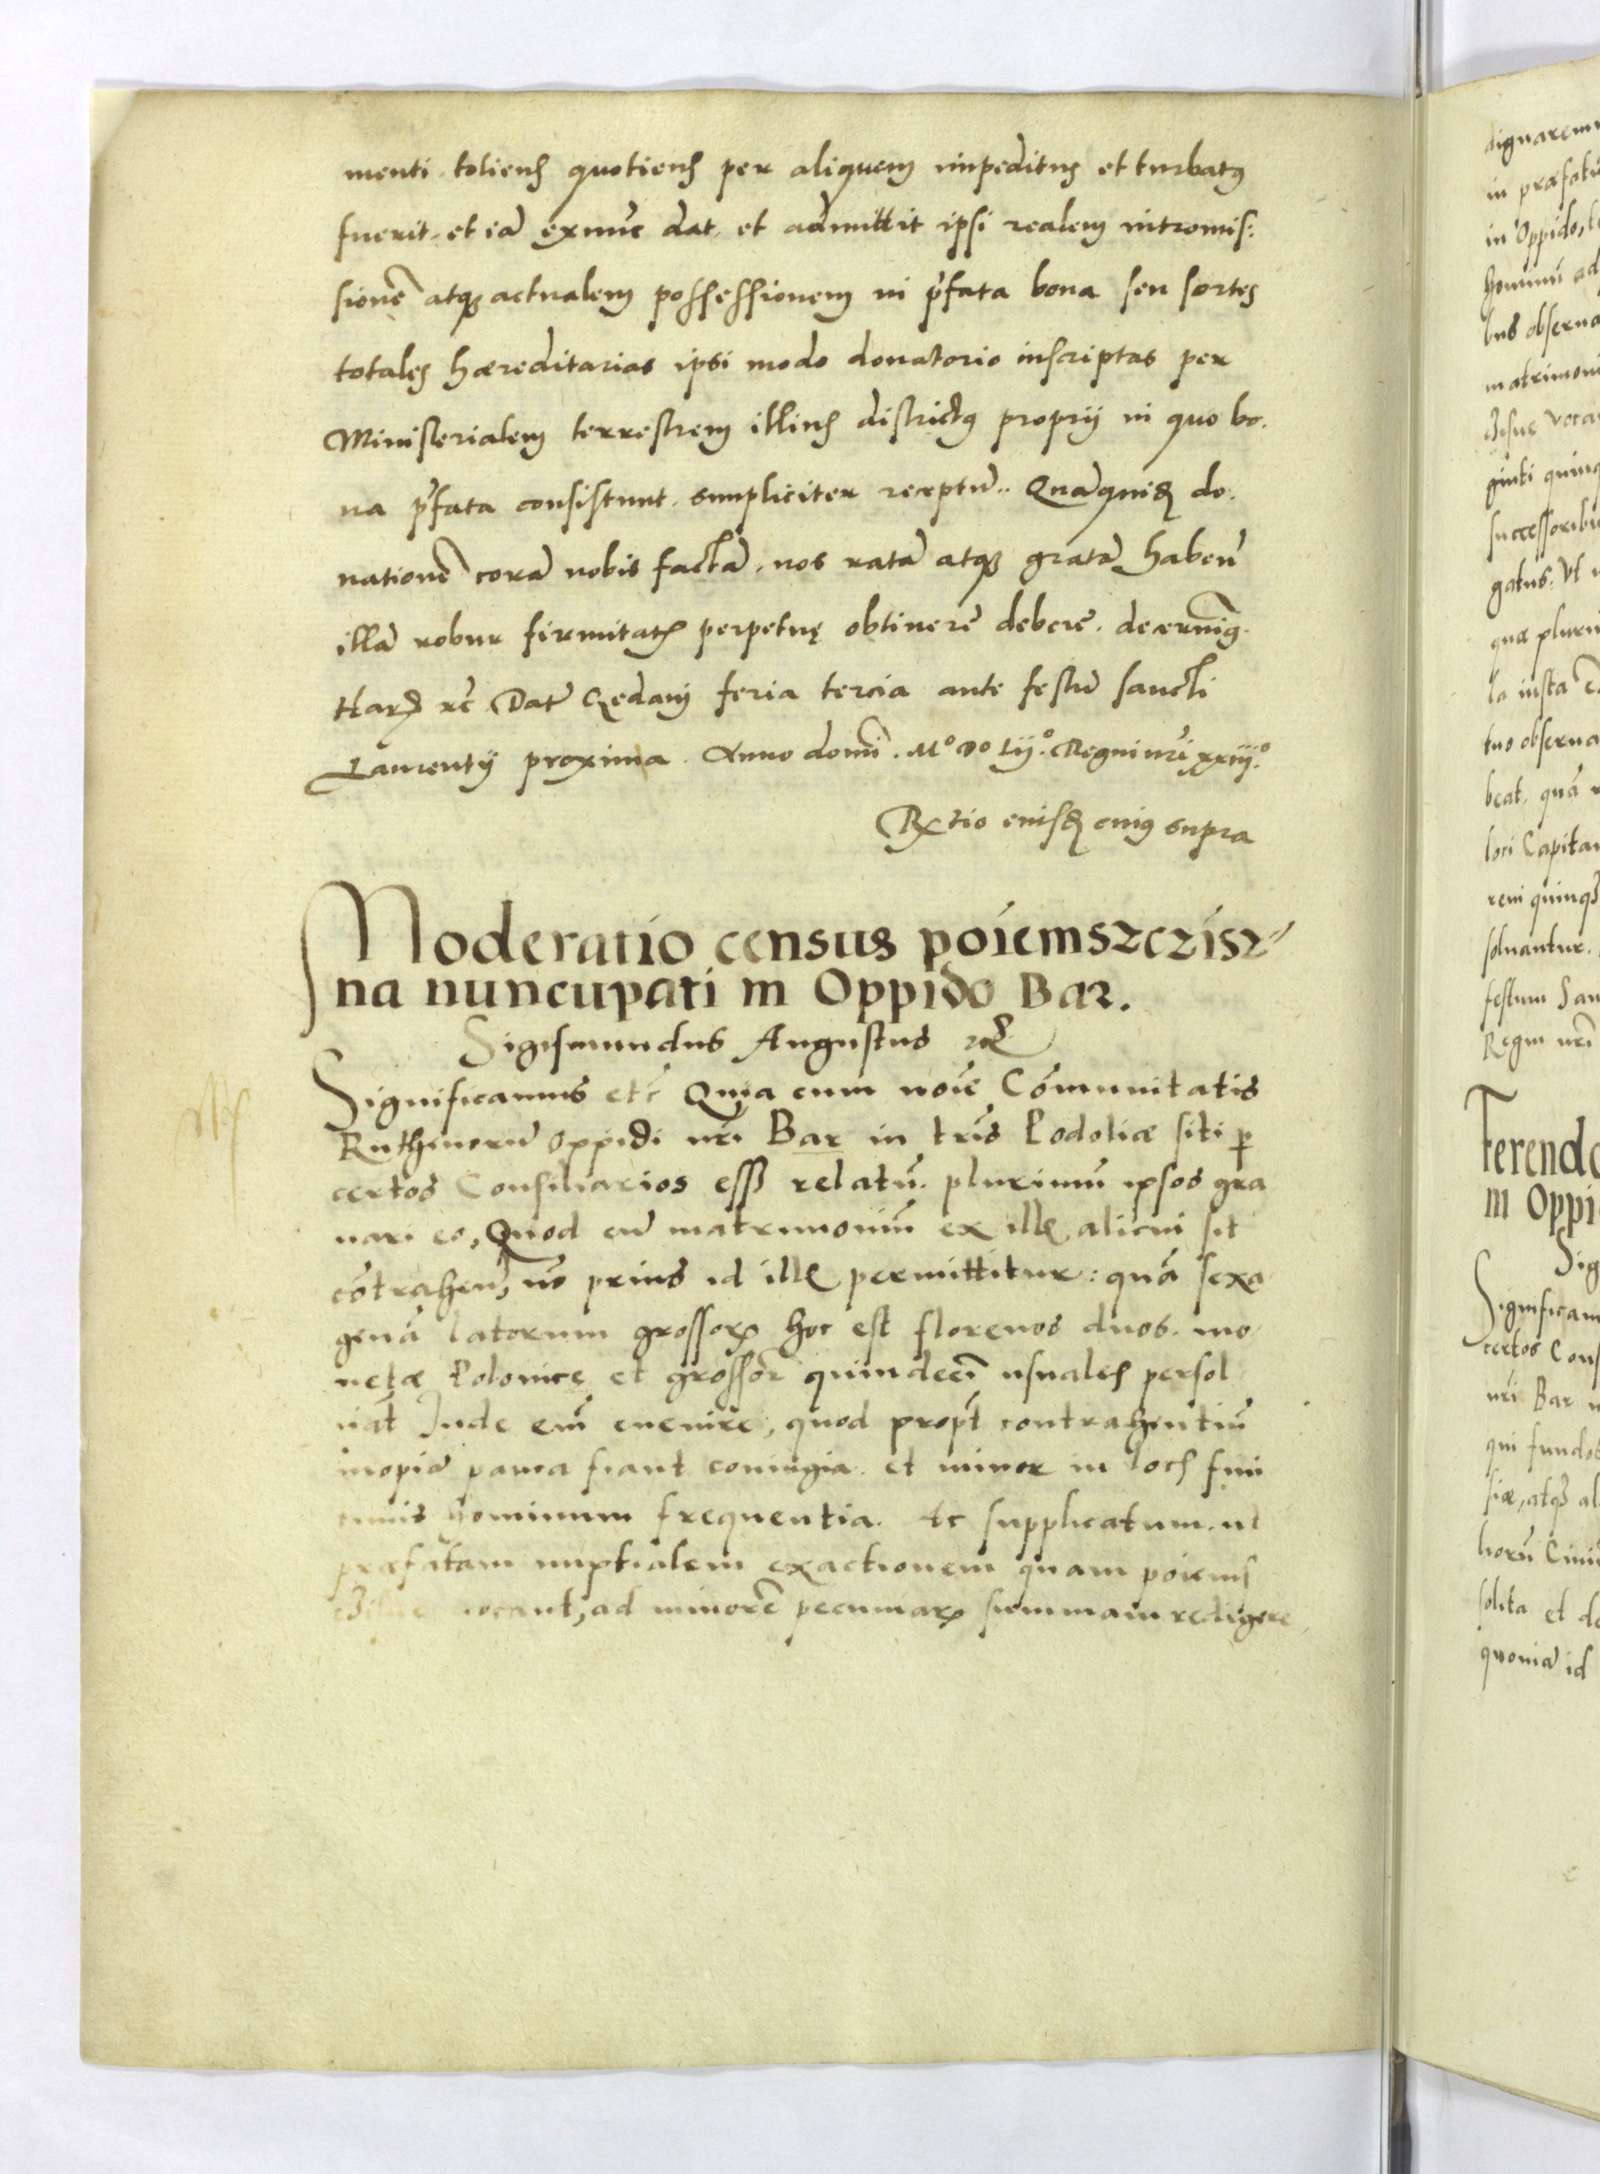 menti. totiens quotiens per aliquem impeditus et turbatus
fuerit. et iã exnũc dat. et admittit ipsi realem intromis:
sionẽ atq actualem possessionem in p̃fata bona seu sortes
totales hæreditarias ipsi modo donatorio inscriptas per
Ministerialem terrestrem illius districtus proprij in quo bo.
na p̃fata consistunt. simpliciter receptũ. Quãquid do.
nationẽ corã nobis factã. nos ratã atq gratã habeñ
illã robur firmitat perpetuę obtinere debere. decernim̃.
Har rc̃ Dat̃ Gedani feria tercia ante festũ sancti
Laurentij proxima. Anno domĩ. Mº Dº Lijº. Regni nr̃i xxiijº.
Rtio eiusd cuius supra
Moderatio census poiemszczisz
na nuncupati in Oppido Bar.
Sigismundus Augustus rc̃
Significamus etc̃ Quia cum noĩe Cõmunitatis
Ruthenorũ oppidi nr̃i Bar in tr̃is Podoliæ siti p
certos Consiliarios esset relatũ. plurimũ ipsos gra
vari eo, Quod cũ matrimoniũ ex ill alicui sit
cõtraheñ, nõ prius id ill permittitur: quã sexa
genã latorum grossor hoc est florenos duos. mo
netæ Polonicę et grossor̃ quindecĩ usuales persol
uat Inde em̃ euenire, quod propt̃ contrahentiũ
inopiã pauca fiant coniugia. et minor in locis fini
timis hominum frequentia. Ac supplicatum. ut
præfatam nuptialem exactionem quam poiems
uocant, ad minorẽ pecuniar summam redigere
dignaremur
in præfatũ
in Oppido,
hominũ ad
bus obserua
matrimoni
voca
ginti quinq
successoribu
gatus. Vt
quæ pluri
la iusta
tuo obserua
beat. quã
loci Capitan
reni quinq
soluantur.
festum San
Regni nr̃i
Ferendo
in Oppi
Sig
Significam
certos Cons
nr̃i Bar
qui fundos
siæ, atq al
horũ Ciuiũ
solita et
quoniã id